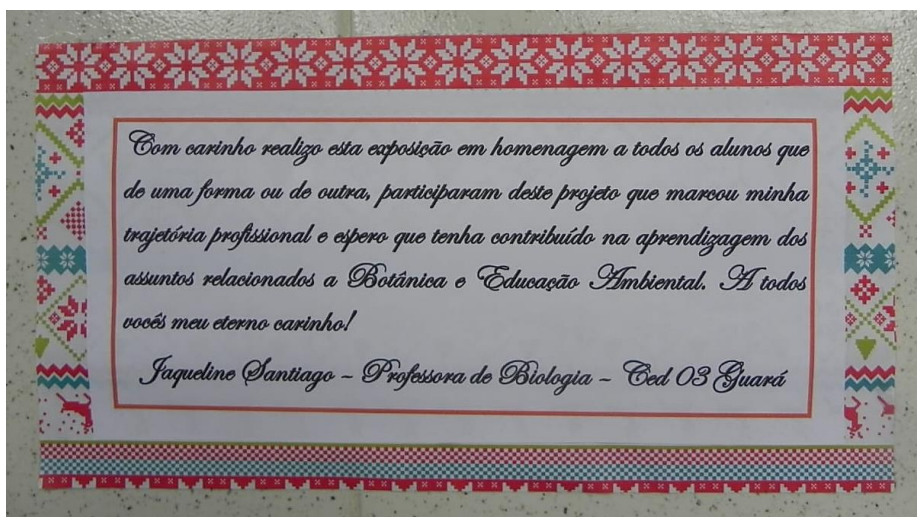 Com carinho realizo esta exposição em homenagem a todos os alunos que
de uma forma ou de outra, participaram deste projeto que marcou minha
trajetória profissional e espero que tenha contribuído na aprendizagem dos
assuntos relacionados a Botânica e Educação Ambiental. A todos
vocês meu eterno carinho!
Jaqueline Santiago – Professora de Biologia – Ced 03 Guará